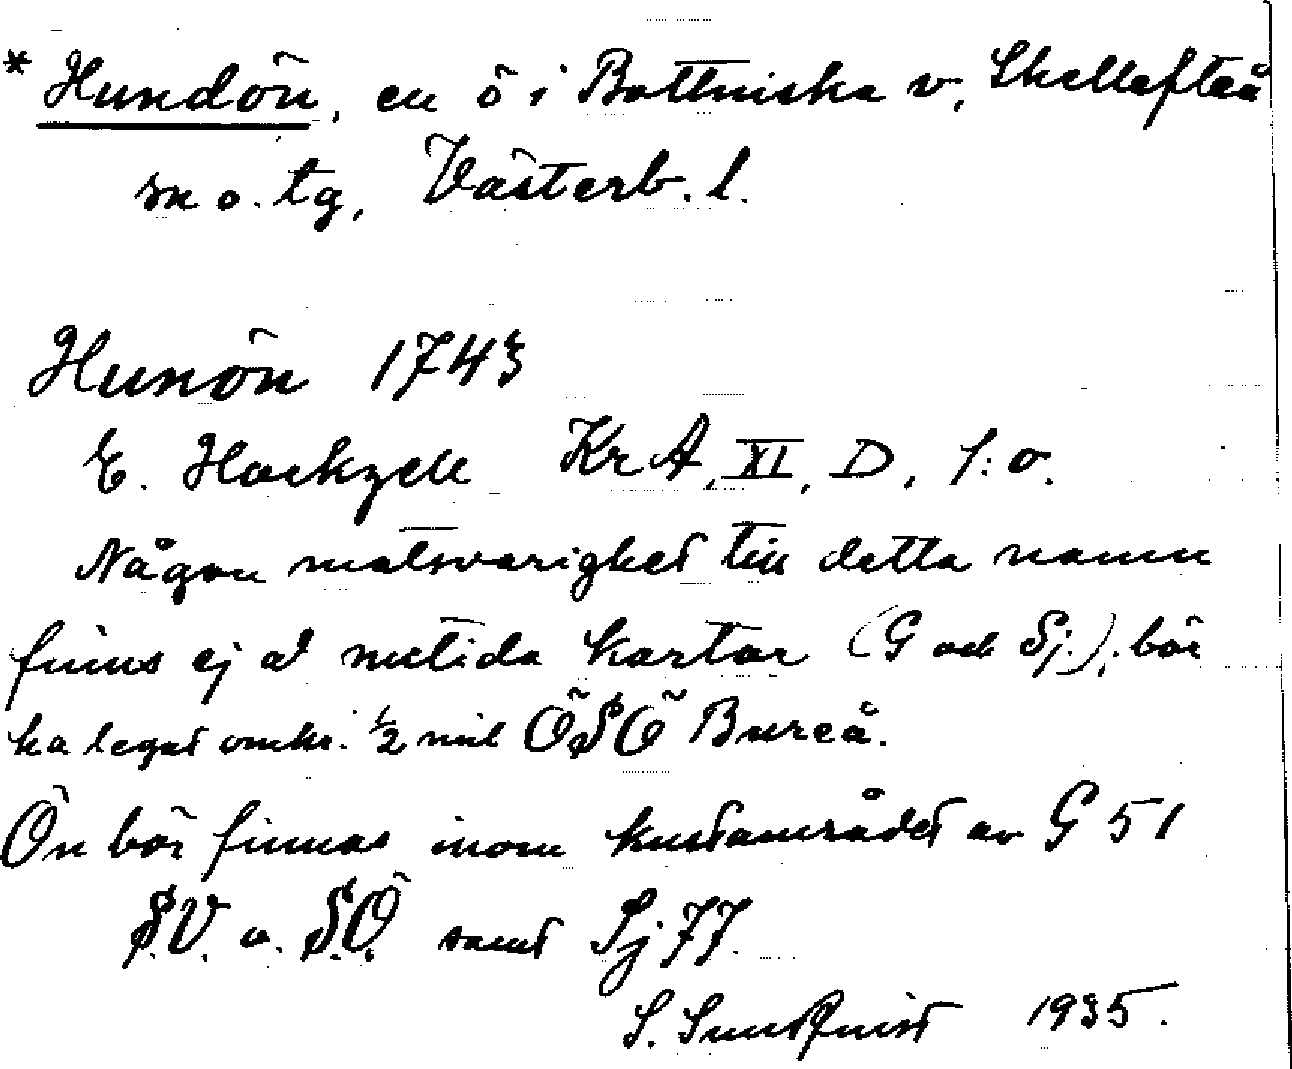 * Hundön, en ö i Bottniska v, Skellefteå
sn o. tg, Västerb. l.
Hunön 1743
E. Hackzell KrA, XI, D, 1:o.
Någon motsvarighet till detta namn
finns ej å nutida kartor (G och Sj.); bör
ha legat omkr. ½ mil ÖSÖ Bureå.
Ön bör finnas inom kustområdet av G 51
S.V. o. S.Ö. samt Sj 77.
S. Sundqvist 1935.